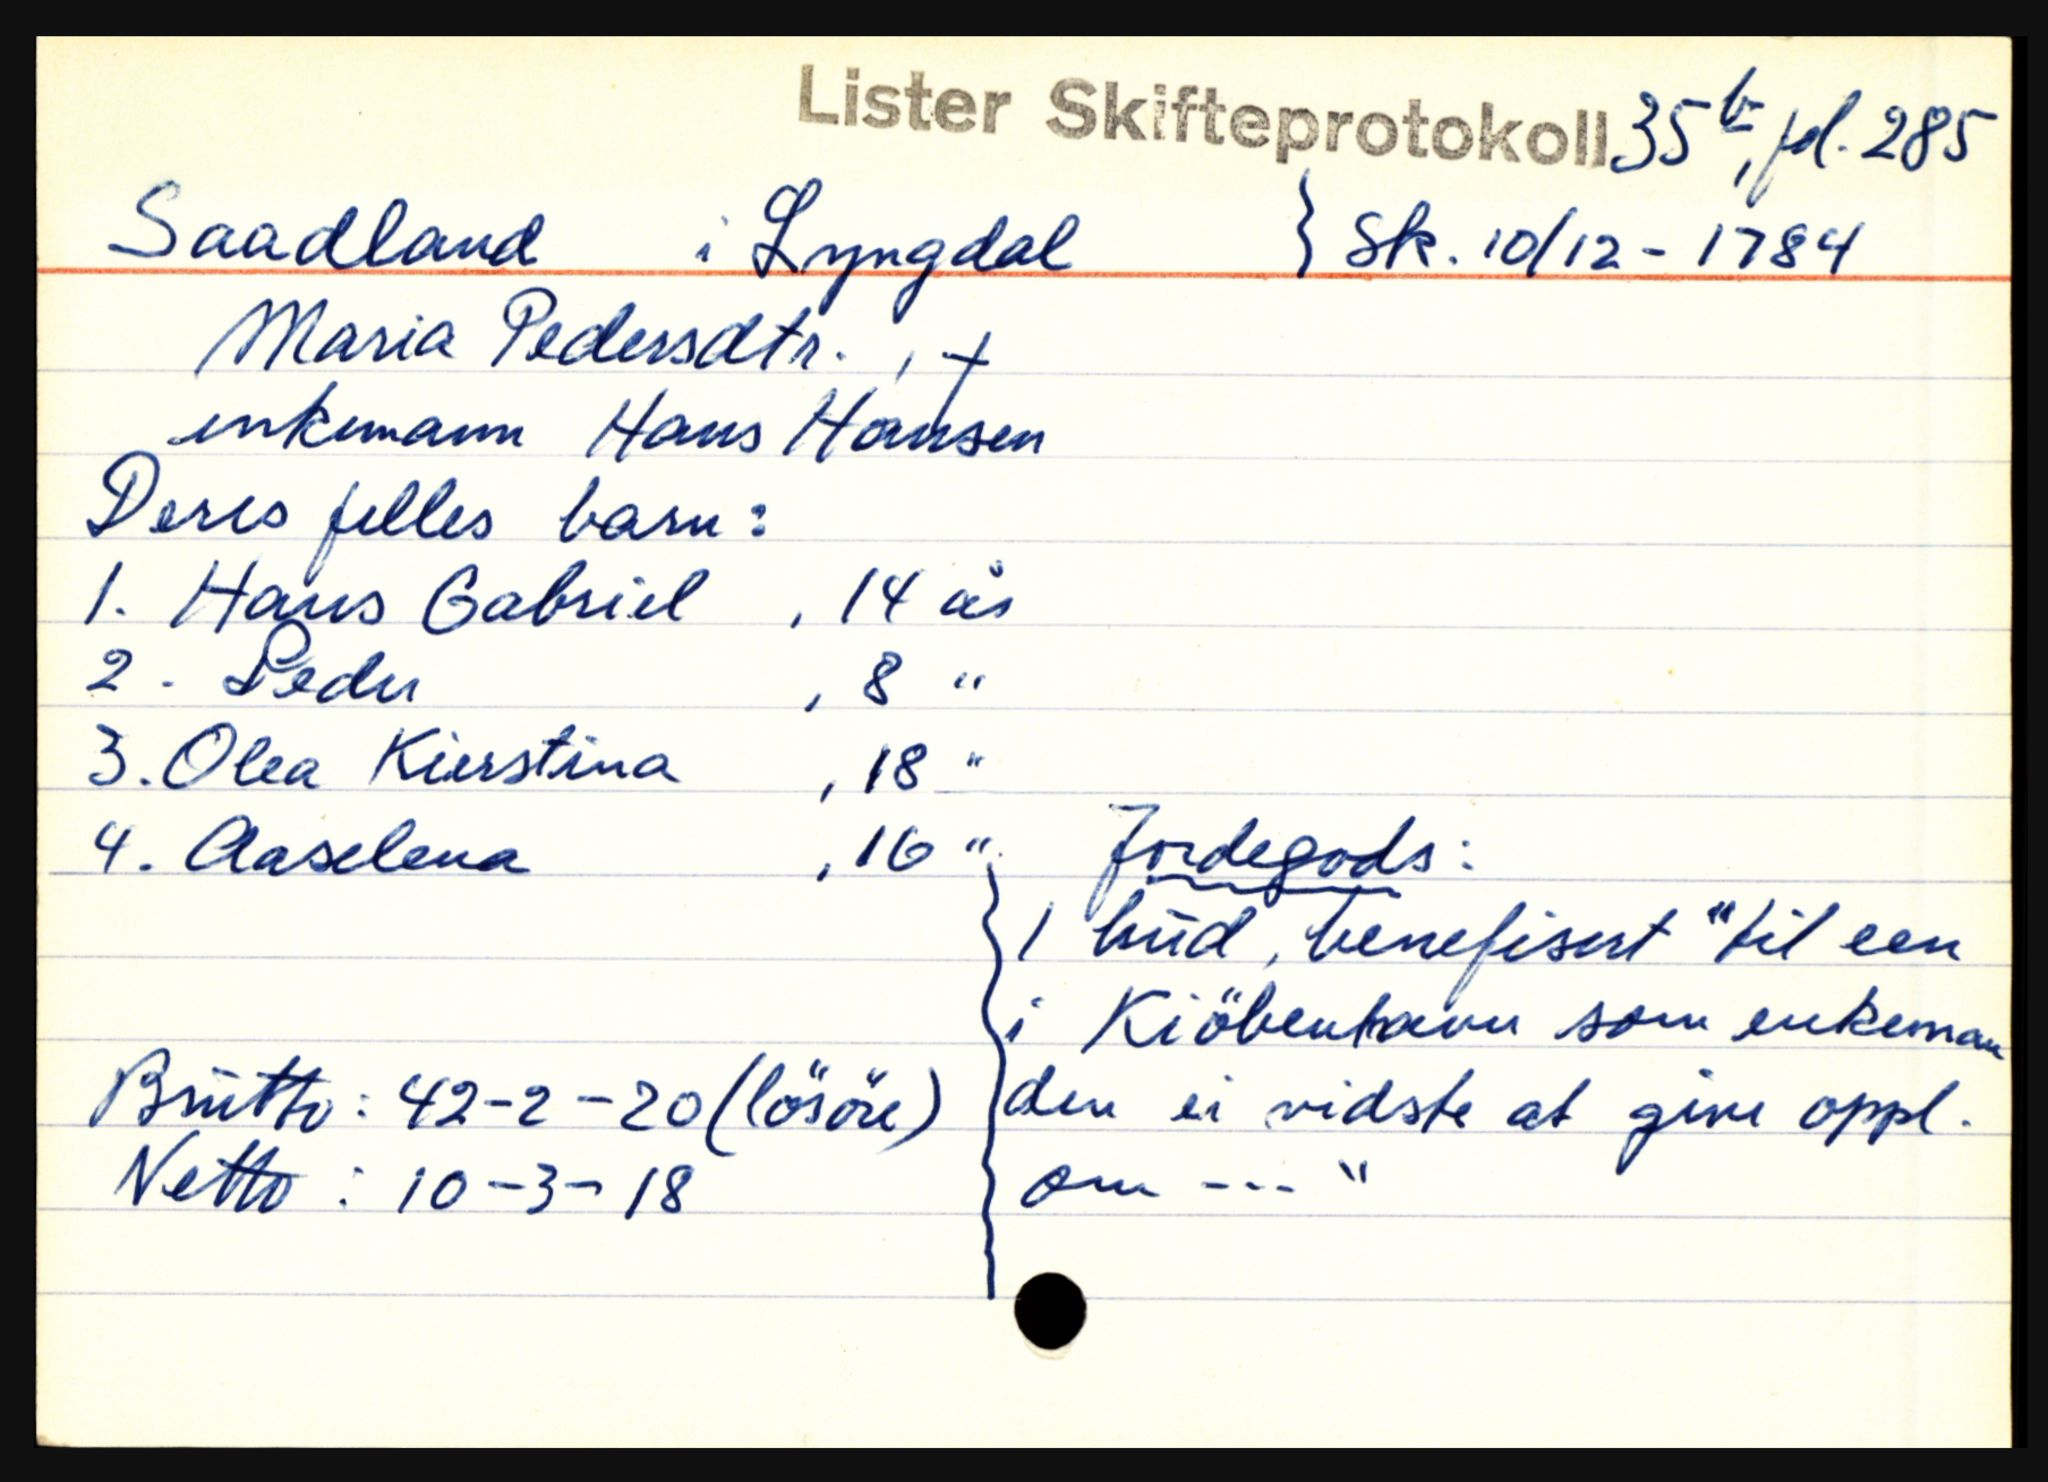 Lister Skifteprotokoll 35b, fol. 285
Saadland i Lyngdal } Sk. 10/12 - 1784
Maria Pedersdtr. , †
enkemann Hans Hansen
Deres felles barn:
1. Hans Gabriel , 14 år
2. Peder , 8 "
3. Olea Kierstina , 18 "
4. Aaselena , 16 "
Brŭtto: 42-2-20 (lösöre)
Netto: 10-3-18
Jordegods:
1 hŭd, benefisert "til een
i Kiöbenhavn som enkeman
den ei vidste at give oppl.
om --- "